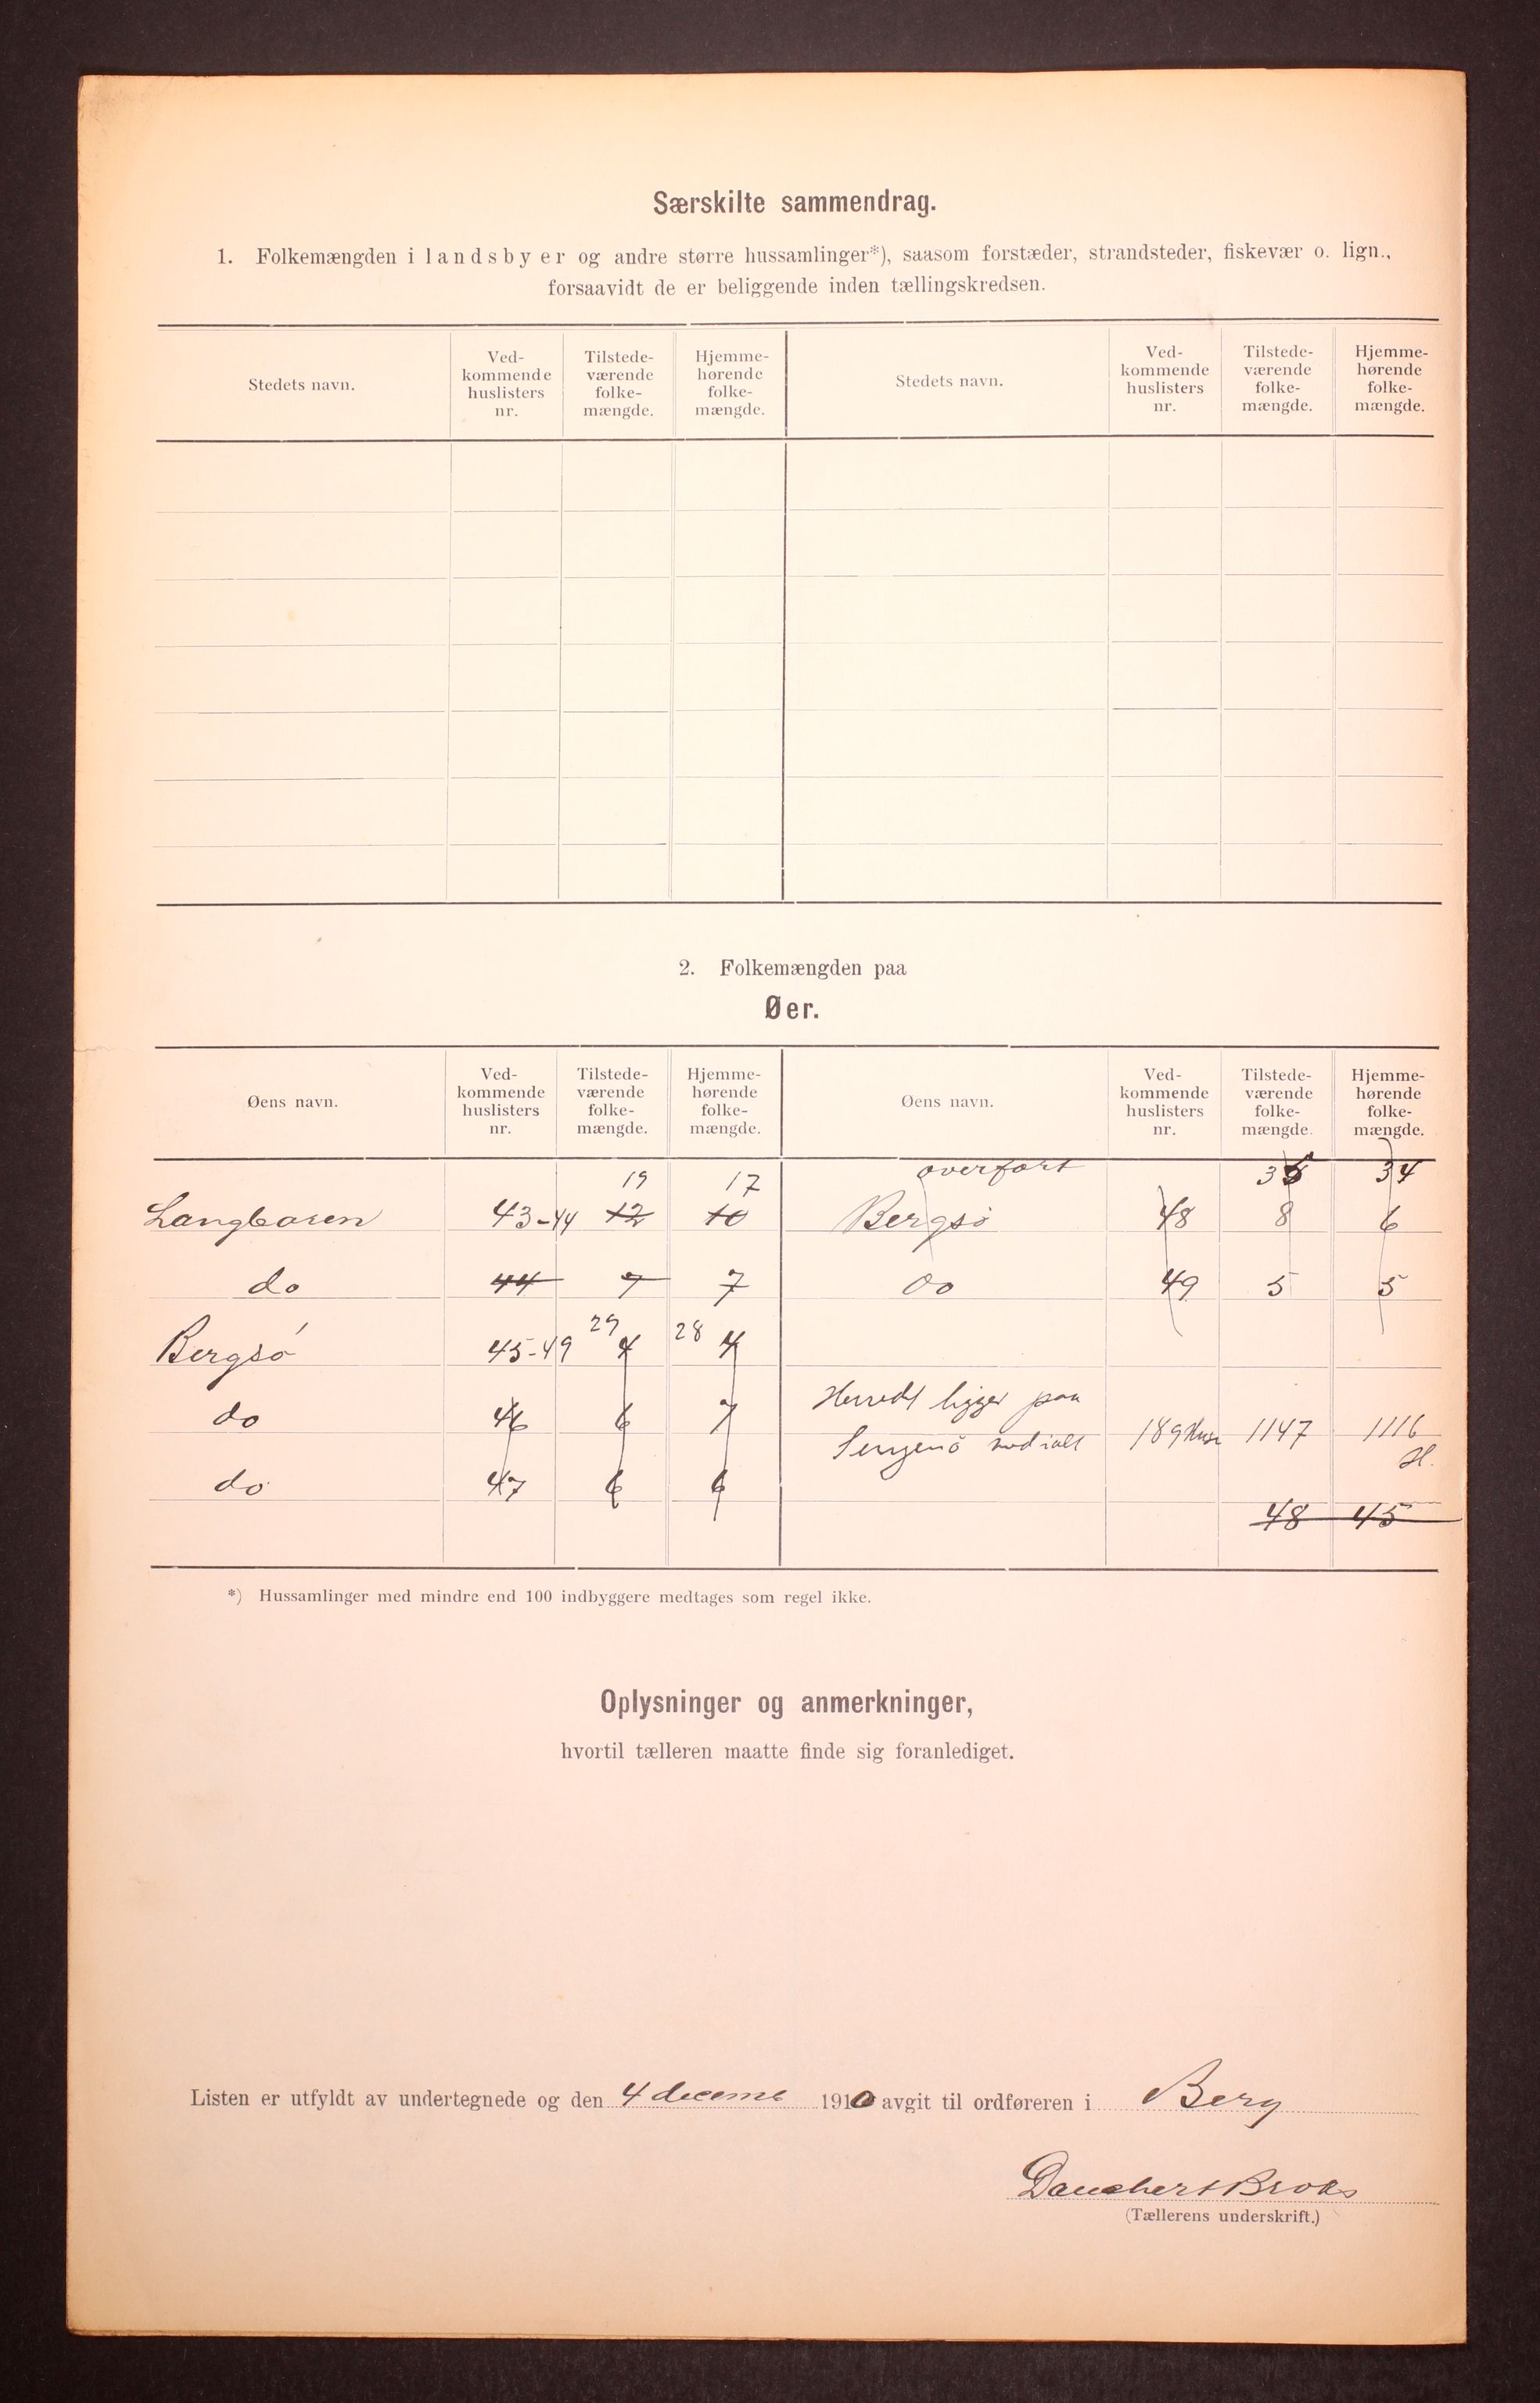 Særskilte sammendrag.
1. Folkemængden i landsbyer og andre større hussamlinger*), saasom forstæder, strandsteder, fiskevær o. lign.,
forsaavidt de er beliggende inden tællingskredsen.
Stedets navn. Ved-kommende huslisters nr. Tilstede-værende folke-mængde. Hjemme-hørende folke-mængde. Stedets navn. Ved-kommende huslisters nr. Tilstede-værende folke-mængde. Hjemme-hørende folke-mængde.
2. Folkemængden paa
Øer.
Øens navn. Ved-kommende huslisters nr. Tilstede-værende folke-mængde. Hjemme-hørende folke-mængde. Øens navn. Ved-kommende huslisters nr. Tilstede-værende folke-mængde. Hjemme-hørende folke-mængde.
19 17 overført 35 34
Langbosen 43-44 12 10 Bergsö 48 8 6
do 44 7 7 do 49 5 5
Bergsö 45-49 29 4 28 4
do 46 6 7 Herredet ligger paa
Senjenö med ialt 189 Huse 1147 1116
H.
do 47 6 6
48 45
*) Hussamlinger med mindre end 100 indbyggere medtages som regel ikke.
Oplysninger og anmerkninger,
hvortil tælleren maatte finde sig foranlediget.
Listen er utfyldt av undertegnede og den 4 decemb 1910 avgit til ordføreren i Berg
Danchert Broks
(Tællerens underskrift.)